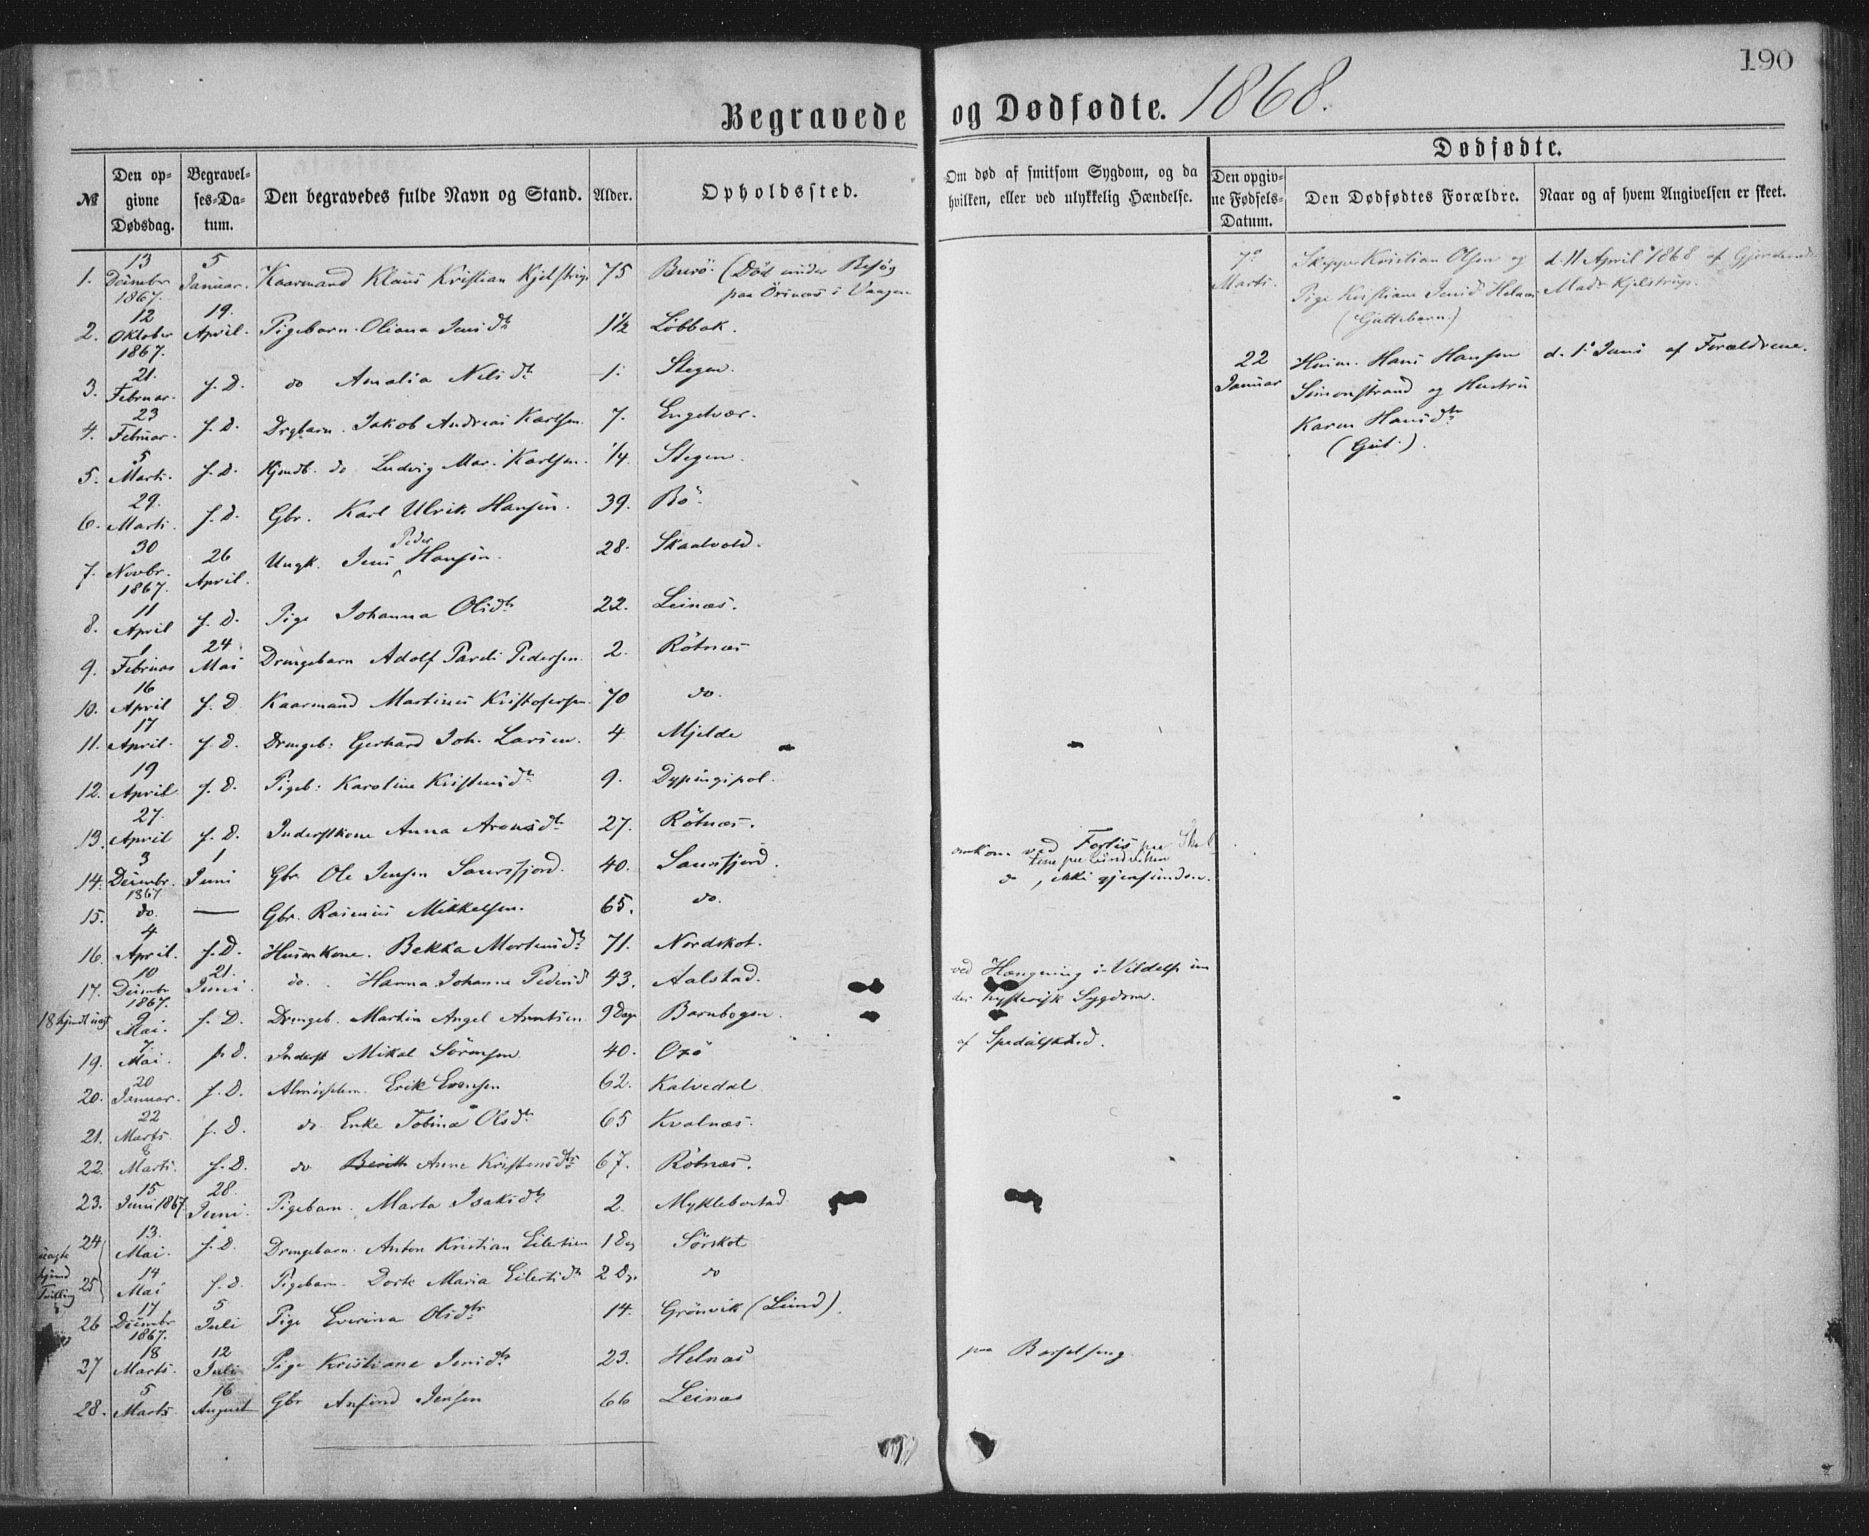 190
Begravede og Dødfødte. 1868.
Dødfødte.
№ Den opgivne Dødsdag. Begravelses-Datum. Den begravedes fulde Navn og Stand. Alder. Opholdssted. Om død af smitsom Sygdom, og da hvilken, eller ved ulykkelig Hændelse. Den opgivne Fødsels-Datum. Den Dødfødtes Forældre. Naar og af hvem Angivelsen er skeet.
1. 13 Decembr 1867. 5 Januar. Kaarmand Klaus Kristian Kjelstrup 75 Burø. (Död under Besøg
paa Örsnes i Vaagen
2. 12 Oktober 1867. 19. April. Pigebarn Oliana Jensdtr 1½ Löbbak.
3. 21. Februar. f. D. do Amalia Nilsdtr 1. Stegen.
4. 23 Februar. f. D. Drgbarn. Jakob Andreas Karlsen 7. Engelvær.
5. 5 Marts. f. D. Hjmdb. do Ludvig Mar. Karlsen. ¼. Stegen.
6. 29. Marts. f. D. Gbr. Karl Ulrik Hansen. 39. Bö.
7. 30 Novbr. 1867. 26 April. Ungk. Jens Peder Hansen. 28. Skaalvold.
8. 11 April f. D. Pige Johanna Olsdtr 22. Leinæs.
9. 1 Februar 24 Mai Drengebarn Adolf Pareli Pedersen. 2. Rötnæs
10. 16 April f. D. Kaarmand Martinus Kristofersen. 70 do.
11. 17 April. f. D. Drengeb: Gerhard Joh. Larsen. 4 Mjelde
12. 19 April f. D. Pigeb: Karoline Kristensdtr 9. Dypingspol.
13. 27. April f. D. Inderstkone Anna Aronsdtr 27. Rötnæs.
14. 3 Decembr. 1867 1 Juni Gbr Ole Jensen Laursfjord. 40. Laursfjord. omkom ved Forlis
15. do. — Gbr. Rasmus Mikkelsen. 65. do. do, ikke gjenfunden.
16. 4 April. f. D. Husmkone. Bekka Mortensdtr 71. Nordskot.
17. 10 Decembr 1867. 21. Juni. do. Hanna Johanna Pedersd 43. Aalstad. ved Hængning i Vildelse under hysterisk Sygdom.
18 hjmdt uægt 9 Mai. f. D. Drengeb. Martin Angel Arntsen 9 Dage Barnbogen.
19. 7. Mai. f. D. Inderst Mikal Sörensen 40. Oxö af Spedalskhed.
20. 20 Januar. f. D. Almisselem. Erik Evensen 62. Kalvedal
21. 22 Marts. f. D. do. Enke Tobina Olsdtr 65 Kvalnæs.
22. 8 Marts. f. D. do Berith Anne Kristensdtr 67. Rötnæs.
23. 15 Juni 1867. 28. Juni. Pigebarn. Marta Isaksdtr 2. Myklebostad
24 13. Mai. f. D. Drengebarn. Anton Kristian Eilertsen 1 Dag Sörskot
uægte hjmd Tvilling
25 14 Mai f. d. Pigebarn. Dorte Maria Eilertsdtr 2 Dg. do
26 17 Decembr 1867. 5 Juli Pige Everina Olsdtr 14. Grönvik (Lund).
27 18 Marts. 12 Juli Pige Kristiane Jensdtr 23. Helnæs paa Barselseng.
28. 5 Marts. 16 August Gbr Anfind Jensen 66 Leinæs
7de Marts. Kristian Olsen og Pige Kristiane Jensd. Helnæs (Guttebarn.) d. 11 April 1868 af Gjordemd Mads Kjelstrup.
22 Januar Husm. Hans Hansen Simonstrand og Hustru Karen Hansdtr (Gut.). d. 1. Juni af Forældrene.